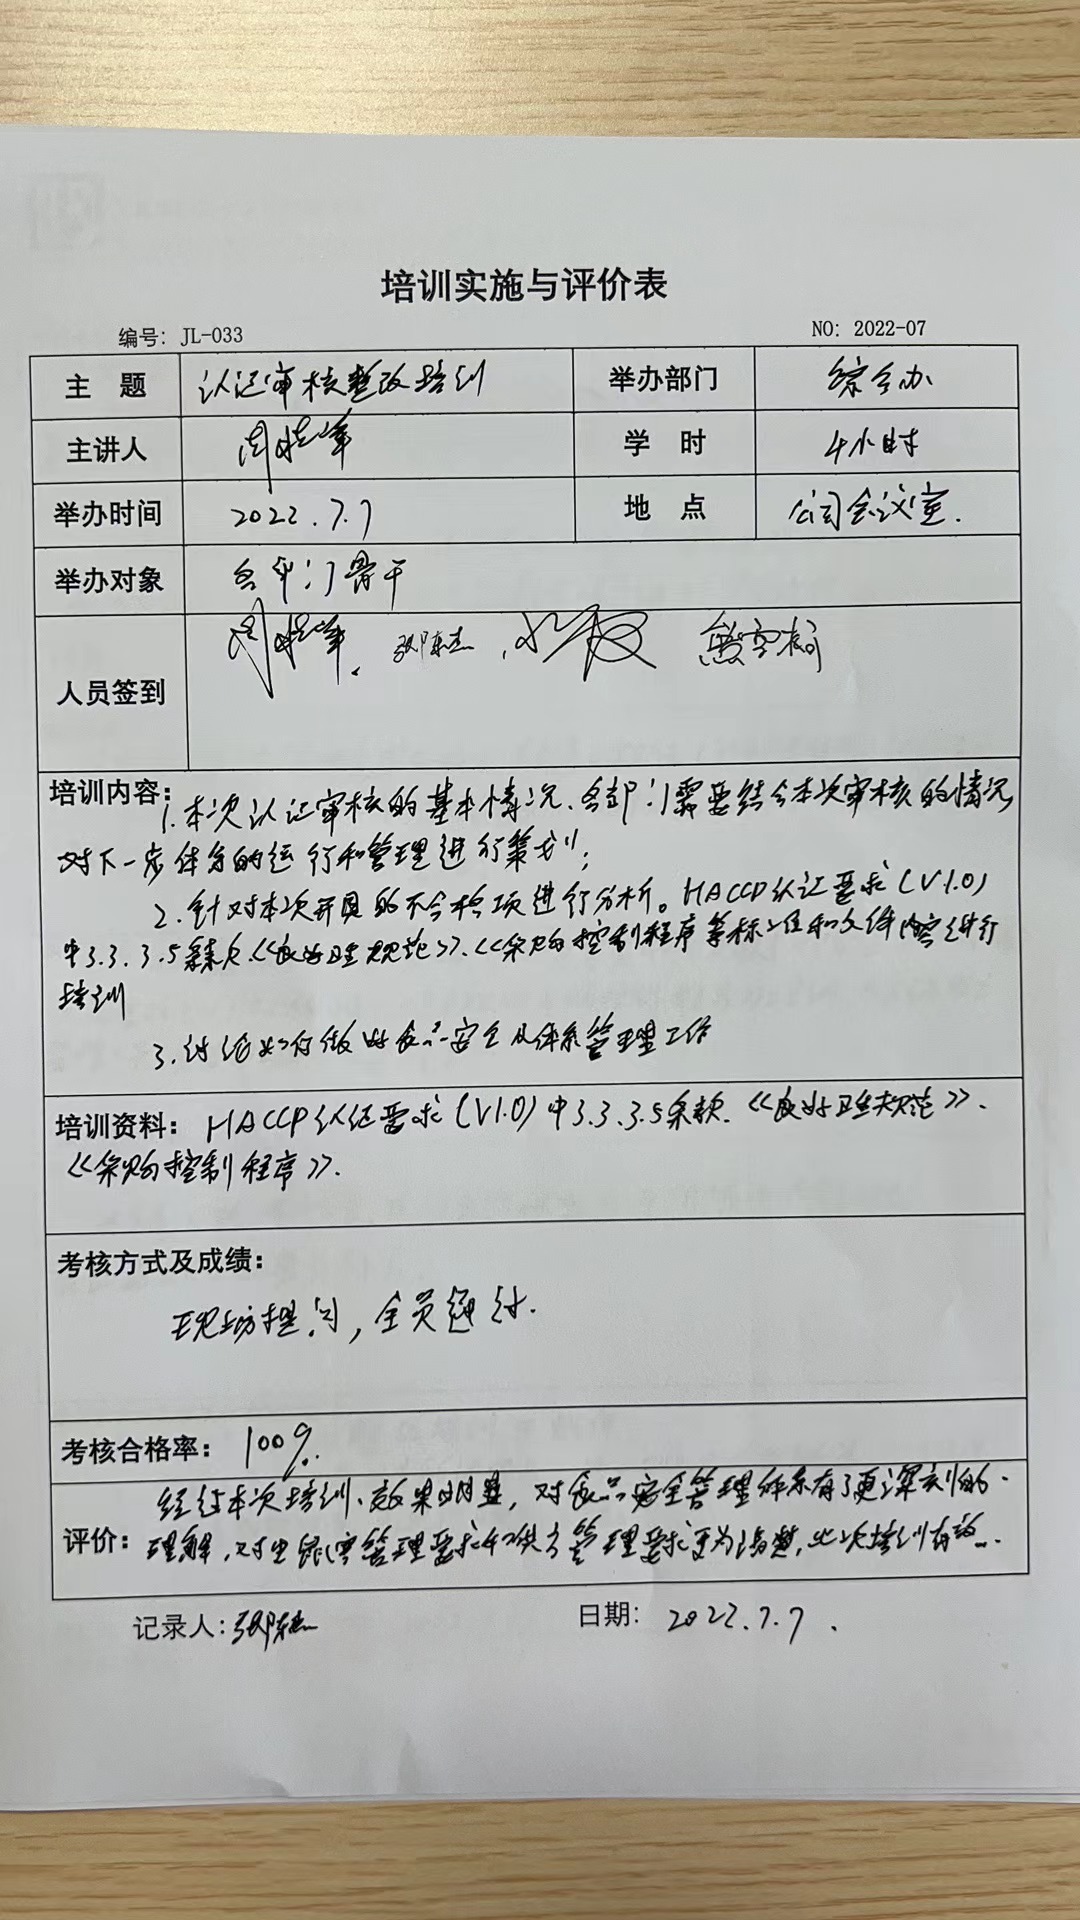 培训实施与评价表
编号: JL-033 NO: 2022-07
主 题 认证审核整改培训 举办部门 综合办
主讲人 学 时 4小时
举办时间 2022.7.7 地 点 公司会议室.
举办对象 各部门骨干
人员签到
培训内容: 1.本次认证审核的基本情况、各部门需要结合本次审核的情况
对下一步体系的运行和管理进行策划;
2.针对本次开具的不合格项进行分析。HACCP认证要求(V1.0)
中3.3、3.5条款、《良好卫生规范》、《采购控制程序等标准和文件内容进行
培训
3.讨论如何做好食品安全及体系管理工作
培训资料: HACCP认证要求(V1.0)中3.3、3.5条款、《良好卫生规范》、
《采购控制程序》.
考核方式及成绩:
现场提问,全员通过.
考核合格率: 100%.
经过本次培训、效果明显,对食品安全管理体系有了更深刻的
评价: 理解,对虫鼠害管理要求和供方管理要求更为清楚,此次培训有效.
记录人: 日期: 2022.7.7.